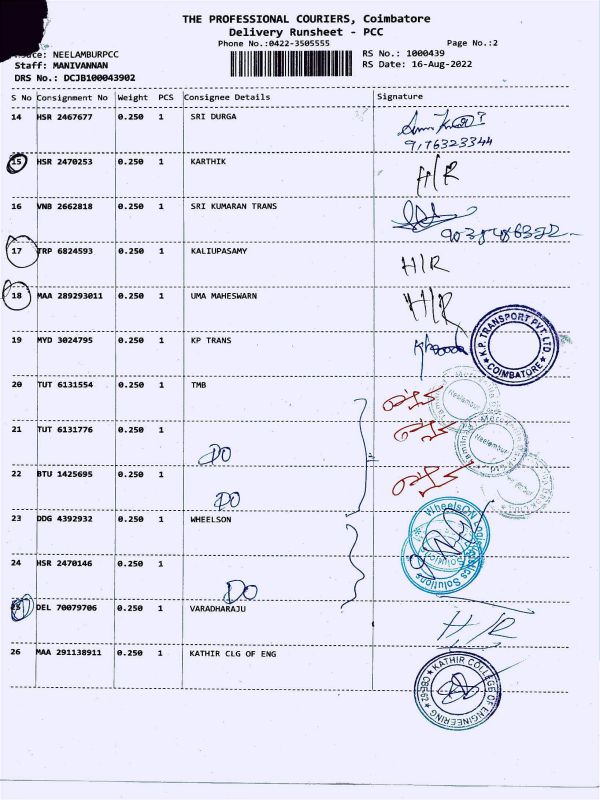 THE PROFESSIONAL COURIERS, Coimbatore
Delivery Runsheet - PCC
Phone No.:0422-3505555
Page No.:2
NEELAMBURPCC
RS No.: 1000439
Staff: MANIVANNAN
RS Date: 16-Aug-2022
DRS No.: DCJB100043902
S No Consignment No Weight PCS Consignee Details Signature
14 HSR 2467677 0.250 1 SRI DURGA
15 HSR 2470253 0.250 1 KARTHIK H/R
16 VNB 2662818 0.250 1 SRI KUMARAN TRANS
17 TRP 6824593 0.250 1 KALIUPASAMY H/R
18 MAA 289293011 0.250 1 UMA MAHESWARN H/R
19 MYD 3024795 0.250 1 KP TRANS
K.P. TRANSPORT PVT. LTD.
COIMBATORE
20 TUT 6131554 0.250 1 TMB
Neelambur
21 TUT 6131776 0.250 1
Neelambur
DO
22 BTU 1425695 0.250 1
DO
23 DDG 4392932 0.250 1 WHEELSON
WheelsON Logistics Solutions
24 HSR 2470146 0.250 1
DO
25 DEL 70079706 0.250 1 VARADHARAJU H/R
26 MAA 291138911 0.250 1 KATHIR CLG OF ENG
KATHIR COLLEGE OF ENGINEERING
CBE-62